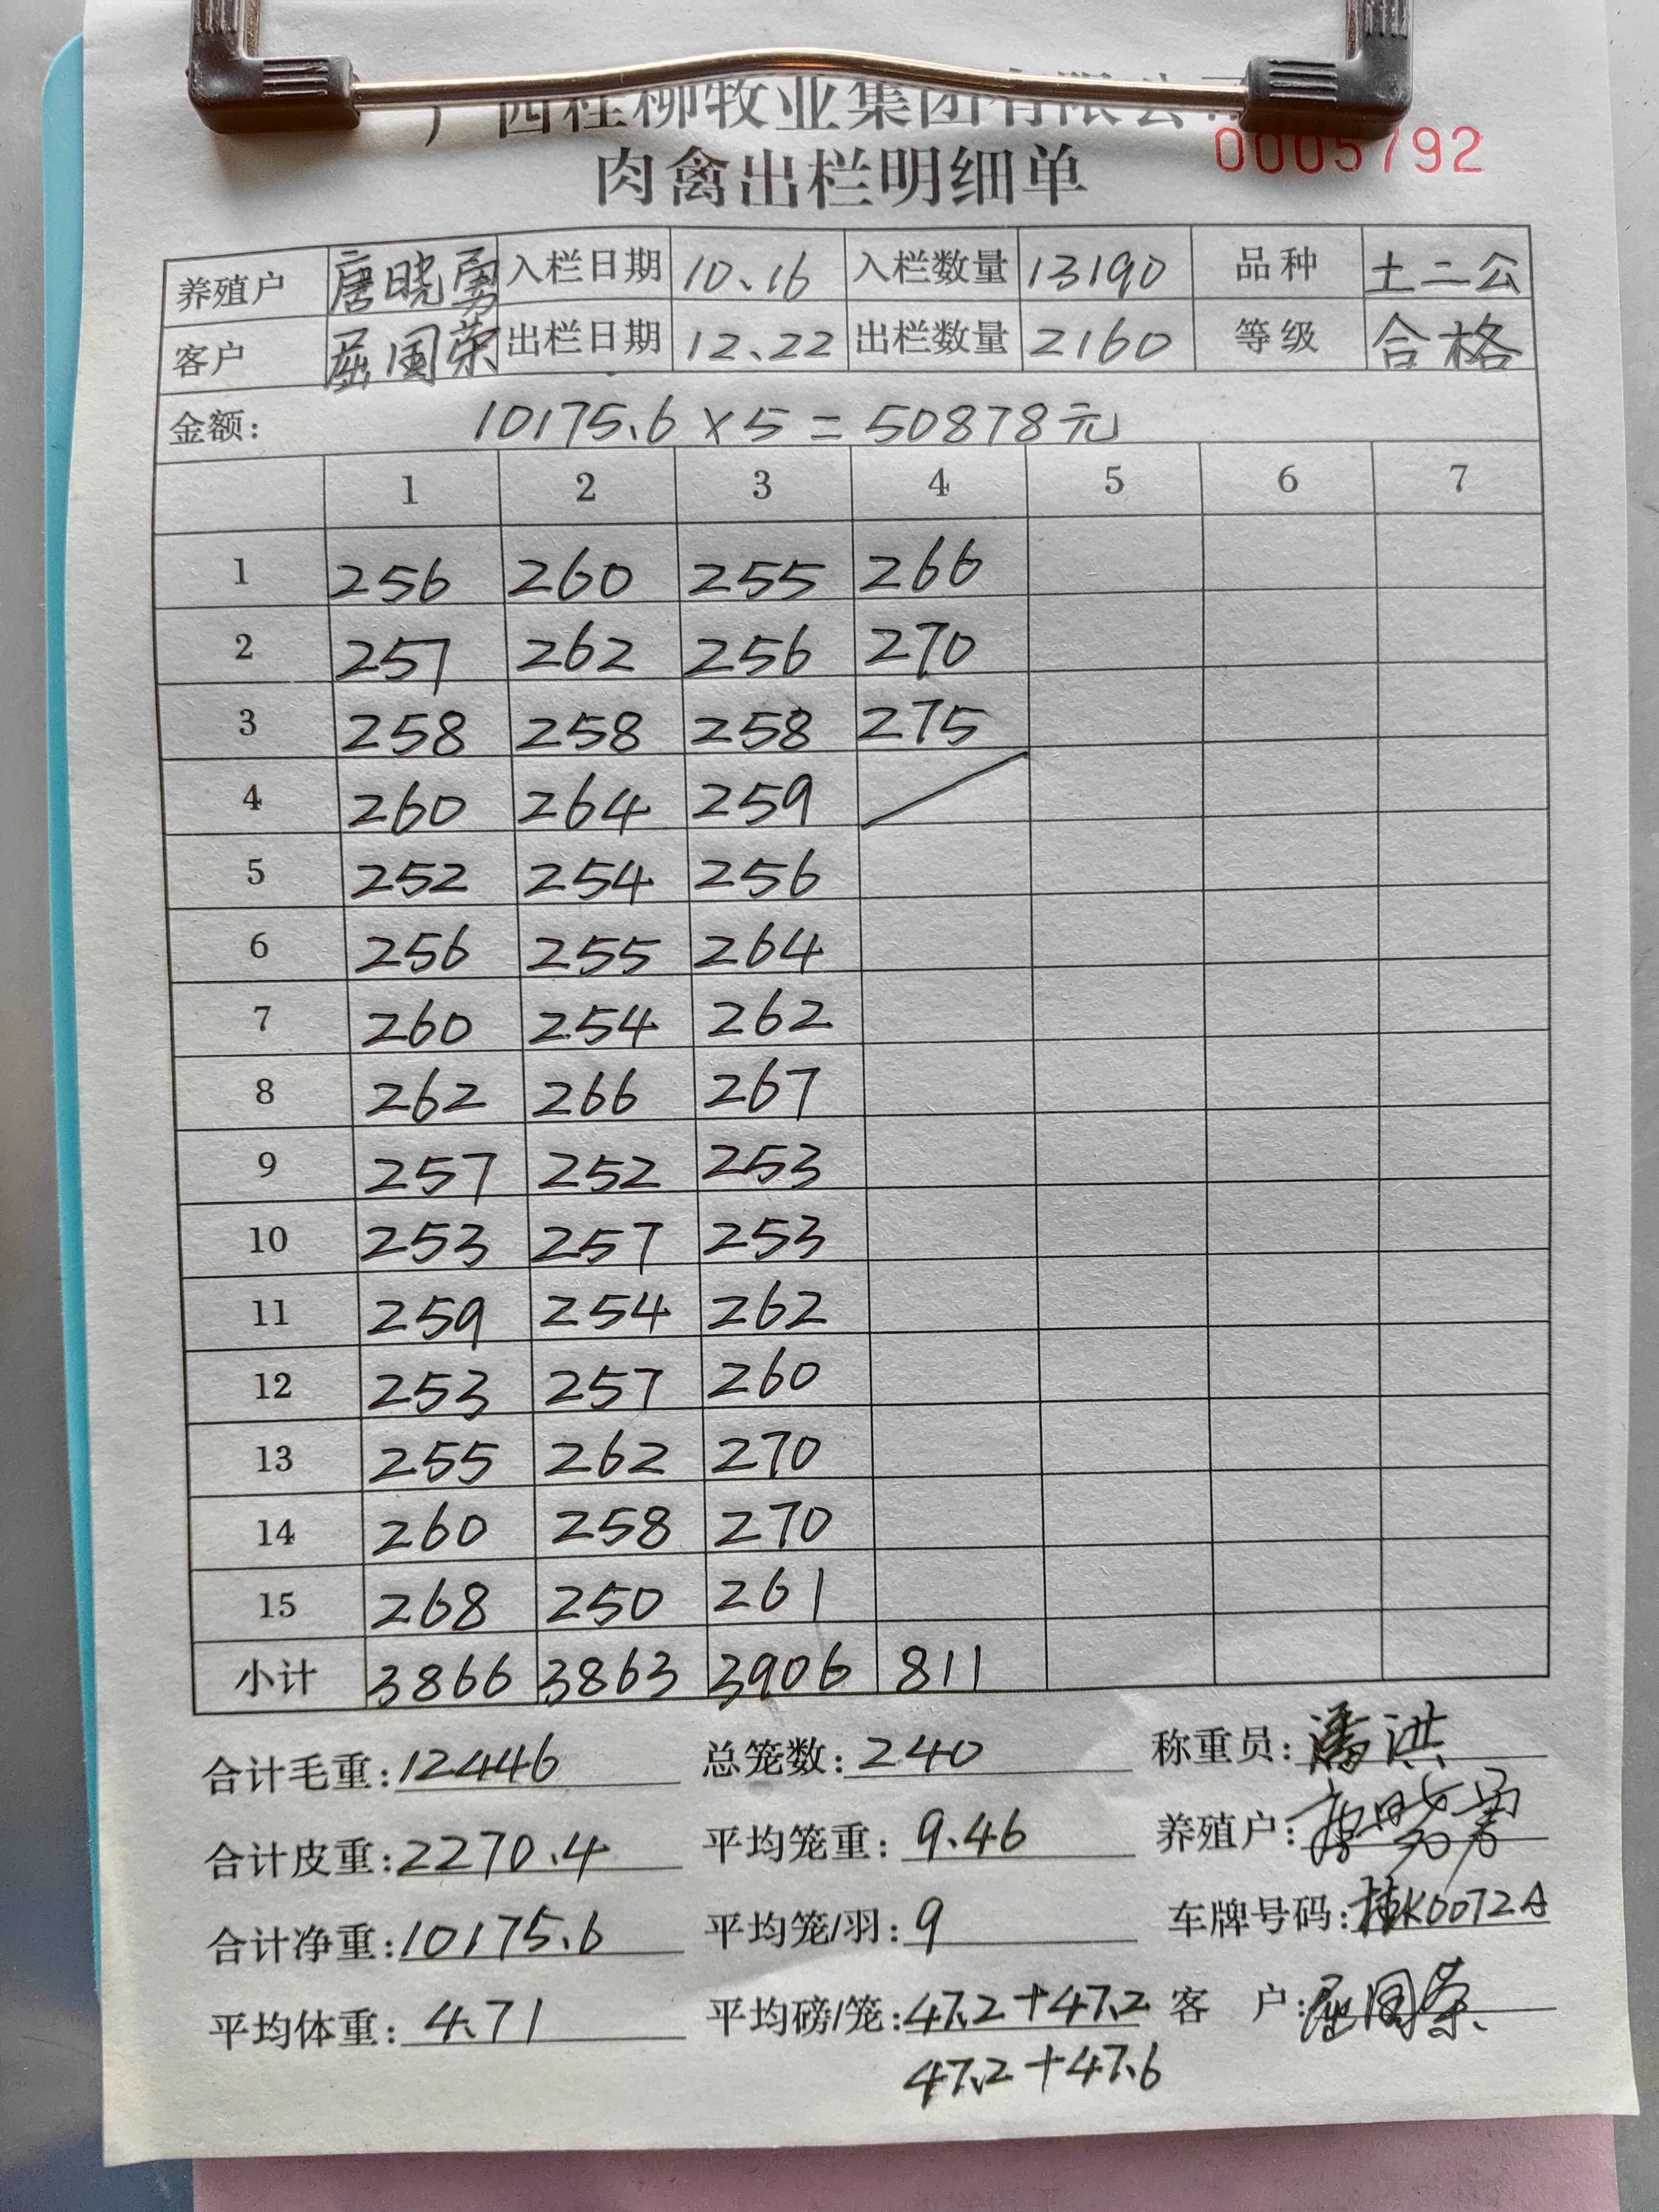 广西桂柳牧业集团有限公
0005792
肉禽出栏明细单
养殖户 唐晓勇 入栏日期 10.16 入栏数量 13190 品种 土二公
客户 屈国荣 出栏日期 12.22 出栏数量 2160 等级 合格
金额: 10175.6×5=50878元
1 2 3 4 5 6 7
1 256 260 255 266
2 257 262 256 270
3 258 258 258 275
4 260 264 259
5 252 254 256
6 256 255 264
7 260 254 262
8 262 266 267
9 257 252 253
10 253 257 253
11 259 254 262
12 253 257 260
13 255 262 270
14 260 258 270
15 268 250 261
小计 3866 3863 3906 811
合计毛重:12446 总笼数:240 称重员:潘洪
合计皮重:2270.4 平均笼重:9.46 养殖户:唐晓勇
合计净重:10175.6 平均笼/羽:9 车牌号码:桂K0072A
平均体重:4.71 平均磅/笼:47.2+47.2 客户:屈国荣
47.2+47.6